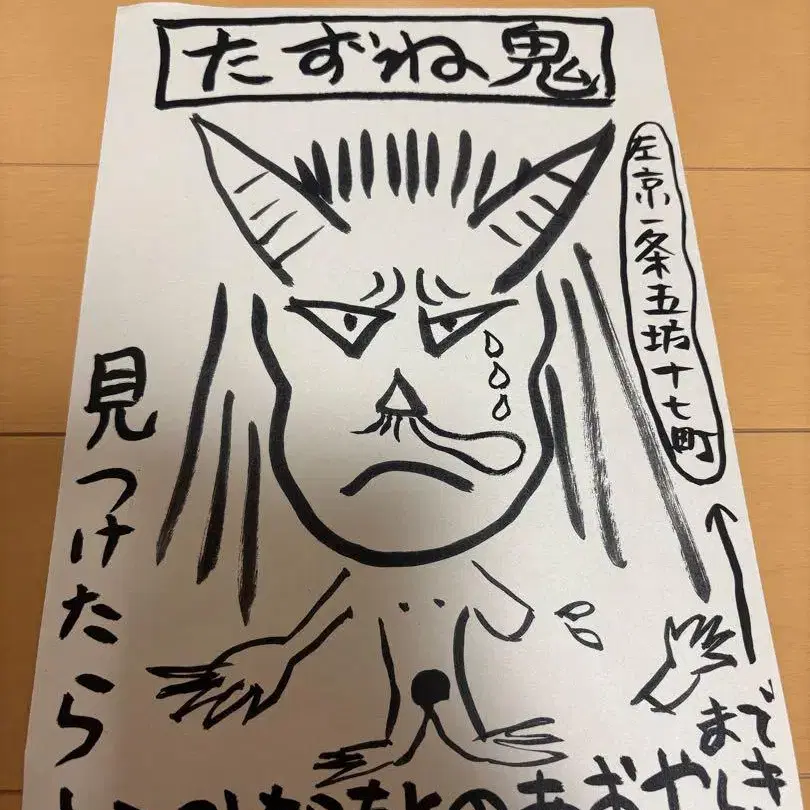 たずね鬼
左京一条五坊十七町
まで
見つけたら